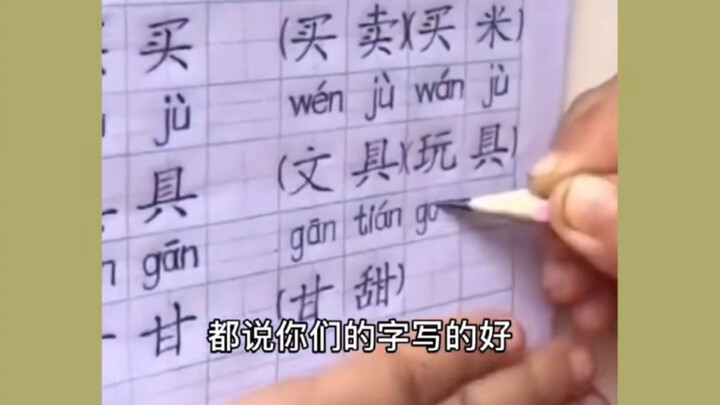 买 (买 卖)(买 米)
jù wén jù wán jù
具 (文 具)(玩 具)
gān gān tián ga
甘 (甘 甜)
都说你们的字写的好